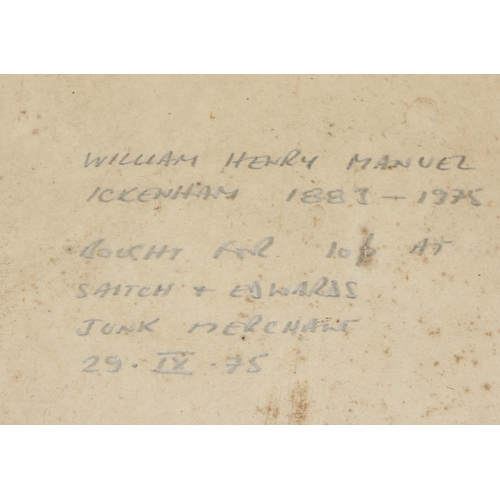 WILLIAM HENRY MANUEL
ICKENHAM 1883 - 1975
BOUGHT FOR 10p AT
SAITCH + EDWARDS
JUNK MERCHANT
29. IX. 75